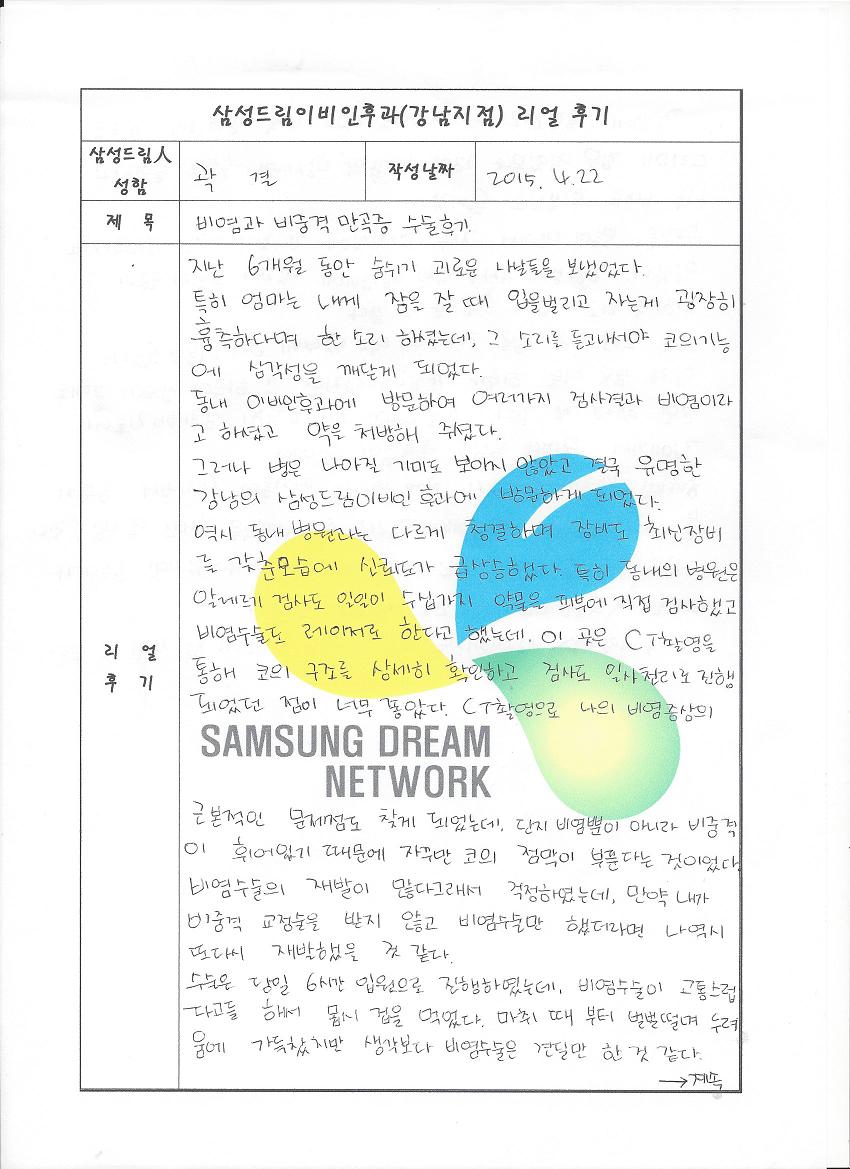 삼성드림이비인후과(강남지점) 리얼 후기
삼성드림人 성함 곽 결 작성날짜 2015. 4. 22
제 목 비염과 비중격 만곡증 수술후기.
리 얼 후 기
지난 6개월 동안 숨쉬기 괴로운 나날들을 보냈었다.
특히 엄마는 내게 잠을 잘 때 입을벌리고 자는게 굉장히
흉측하다며 한 소리 하셨는데, 그 소리를 듣고나서야 코의기능
에 심각성을 깨닫게 되었다.
동내 이비인후과에 방문하여 여러가지 검사결과 비염이라
고 하셨고 약을 처방해 주셨다.
그러나 병은 나아질 기미도 보이지 않았고 결국 유명한
강남의 삼성드림이비인후과에 방문하게 되었다.
역시 동내병원과는 다르게 청결하며 장비도 최신장비
를 갖춘모습에 신뢰도가 급상승했다. 특히 동내의 병원은
알레르기 검사도 일일이 수십가지 약물을 피부에 직접 검사했고
비염수술도 레이저로 한다고 했는데. 이 곳은 CT촬영을
통해 코의 구조를 상세히 확인하고 검사도 일사천리로 진행
되었던 점이 너무 좋았다. CT촬영으로 나의 비염증상의
SAMSUNG DREAM
NETWORK
근본적인 문제점도 찾게 되었는데. 단지 비염뿐이 아니라 비중격
이 휘어있기 때문에 자꾸만 코의 점막이 부푼다는 것이었다.
비염수술의 재발이 많다그래서 걱정하였는데, 만약 내가
비중격 교정술을 받지 않고 비염수술만 했더라면 나역시
또다시 재발했을 것 같다.
수술은 당일 6시간 입원으로 진행하였는데, 비염수술이 고통스럽
다고들 해서 몹시 겁을 먹었다. 마취 때 부터 벌벌떨며 두려
움에 가득찼지만 생각보다 비염수술은 견딜만 한 것 같다.
→계속